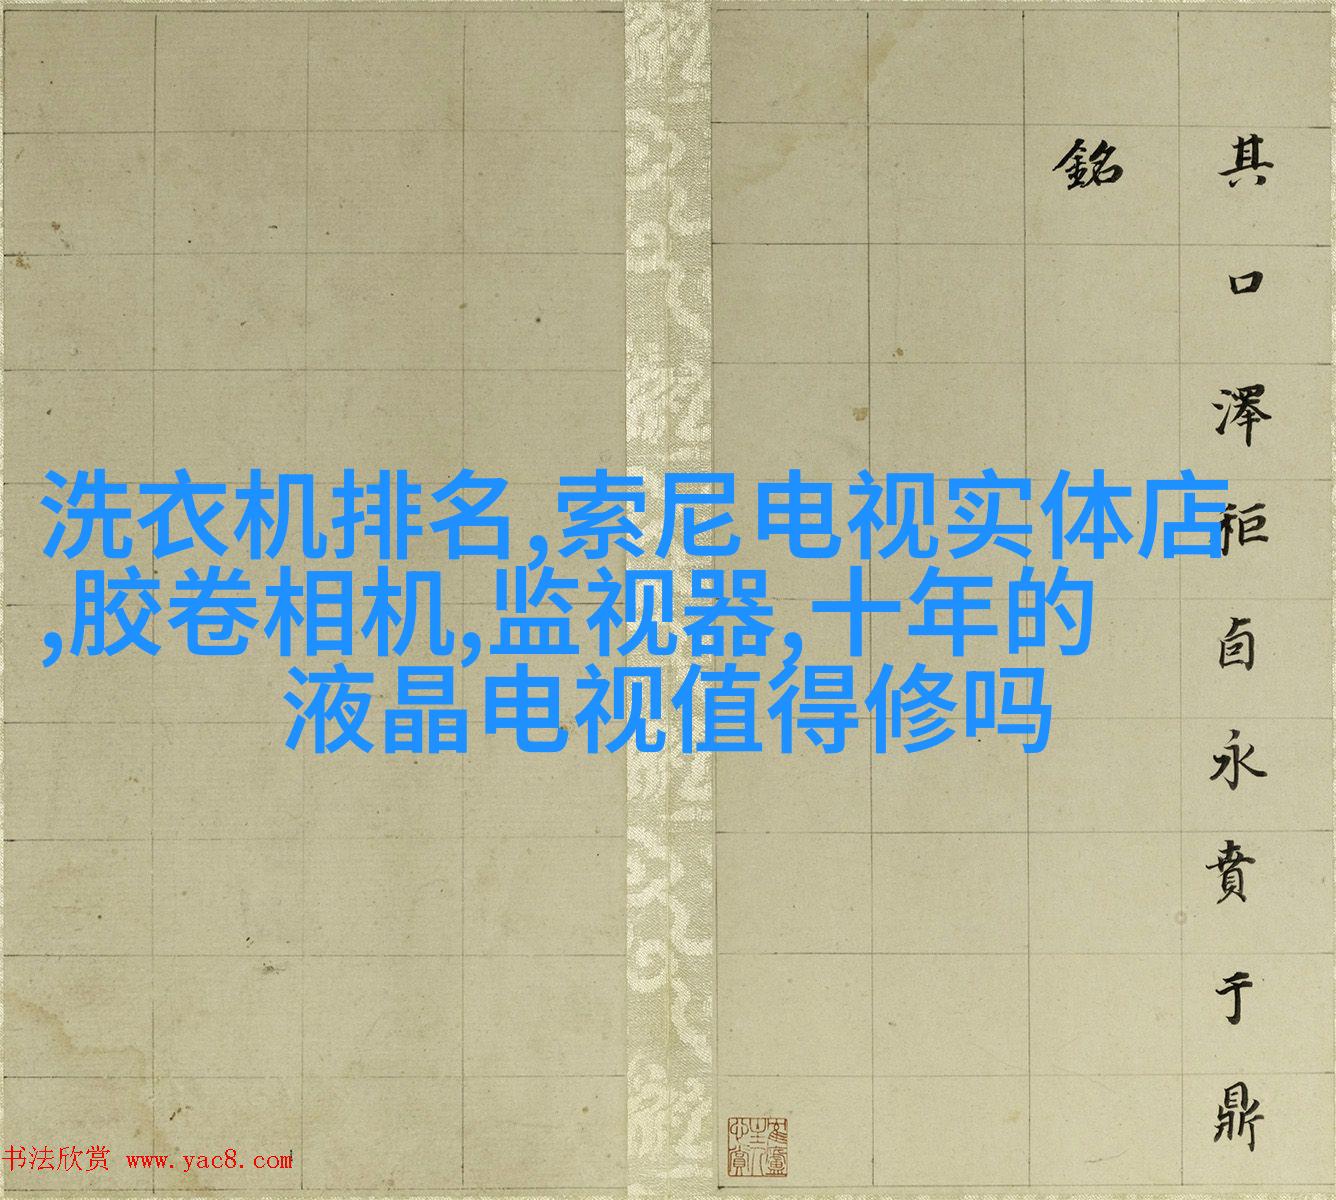 其口澤秬卣永賁于鼎
銘
洗衣机排名,索尼电视实体店
,胶卷相机,监视器,十年的
液晶电视值得修吗
书法欣赏 www.yac8.com